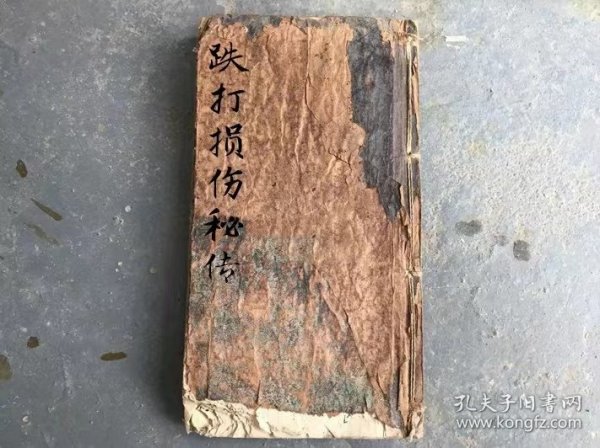 跌打损伤秘传
孔夫子旧书网
www.kongfz.com